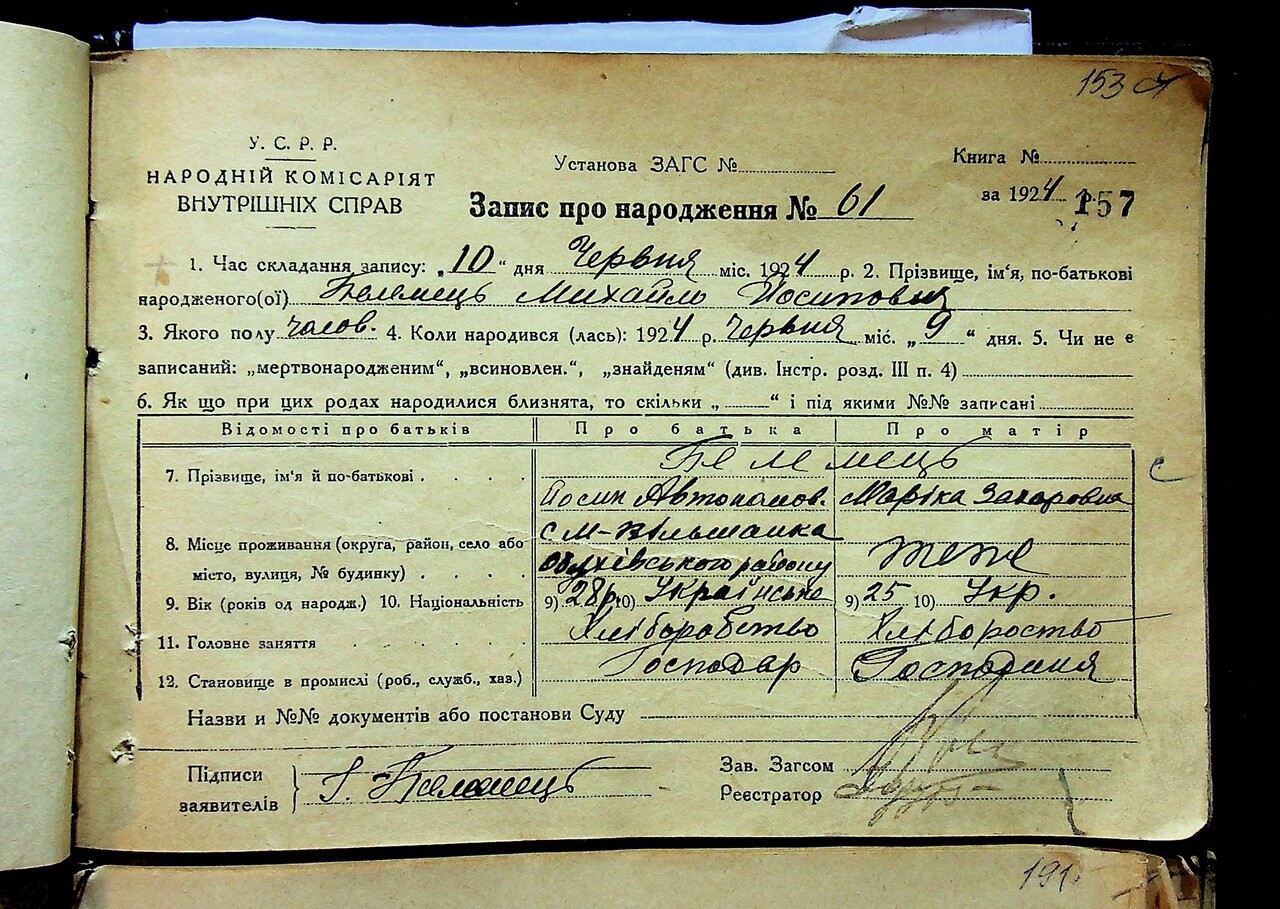 153
У. С. Р. Р.
НАРОДНІЙ КОМІСАРІЯТ
ВНУТРІШНІХ СПРАВ
Установа ЗАГС №
Книга №
за 1924 р.
157
Запис про народження № 61
1. Час складання запису: „10“ дня Червня міс. 1924 р. 2. Прізвище, ім'я, по-батькові
народженого(ої) Михайло Йосипович
3. Якого полу чолов. 4. Коли народився (лась): 1924 р. Червня міс. „9“ дня. 5. Чи не є
записаний: „мертвонародженим“, „всиновлен.“, „знайденям“ (див. Інстр. розд. III п. 4)
6. Як що при цих родах народилися близнята, то скільки „ “ і під якими №№ записані
Відомості про батьків Про батька Про матір
7. Прізвище, ім'я й по-батькові
Йосип Автономов. Маріка Захаровна
с М-Вільшанка
8. Місце проживання (округа, район, село або
місто, вулиця, № будинку) Обухівського району тоже
9. Вік (років од народж.) 10. Національність 9) 28 р. 10) Українська 9) 25 10) Укр.
11. Головне заняття Хліборобство Хлібороство
12. Становище в промислі (роб., служб., хаз.) Господар Господиня
Назви и №№ документів або постанови Суду
Підписи
заявителів
Зав. Загсом
Реєстратор
191